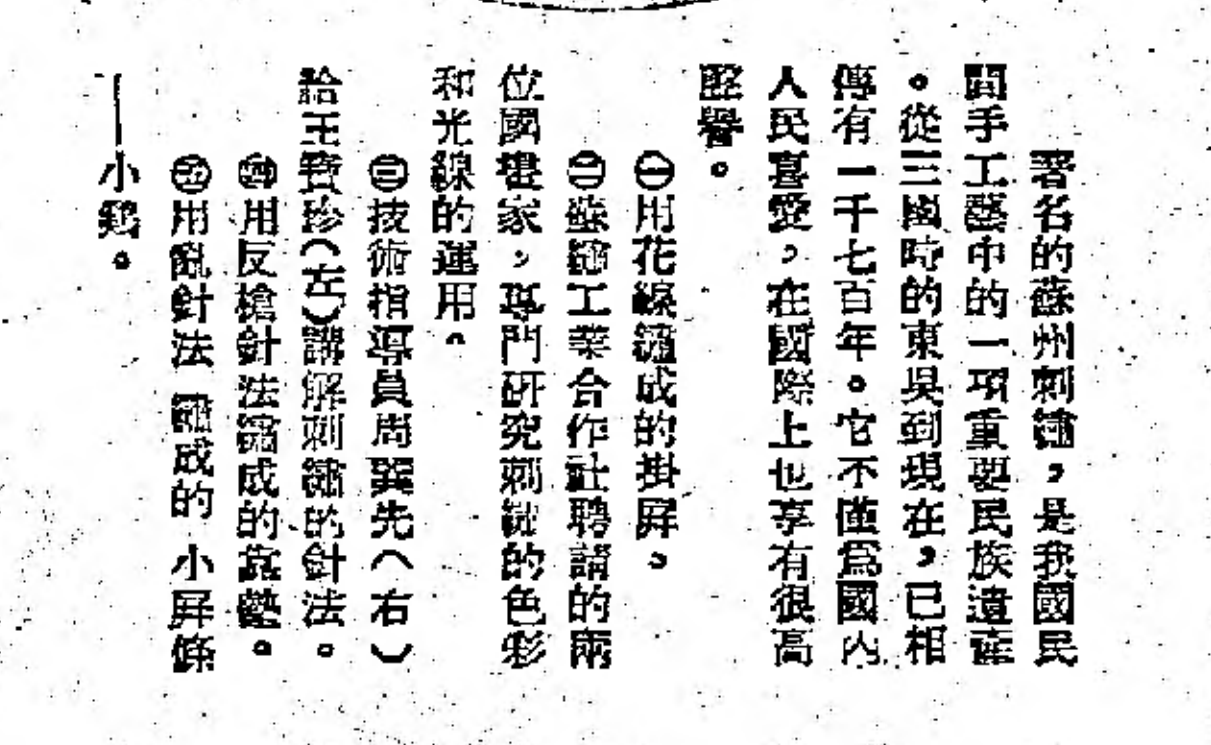 著名的蘇州刺繡，是我國民
間手工藝中的一項重要民族遺產
。從三國時的東吳到現在，已相
傳有一千七百年。它不僅爲國內
人民喜愛，在國際上也享有很高
聲譽。
㊀用花線繡成的掛屏。
㊁蘇繡工業合作社聘請的兩
位國畫家，專門研究刺繡的色彩
和光線的運用。
㊂技術指導員周巽先（右）
給王寶珍（左）講解刺繡的針法。
㊃用反搶針法繡成的靠墊。
㊄用亂針法繡成的小屏條
——小鷄。